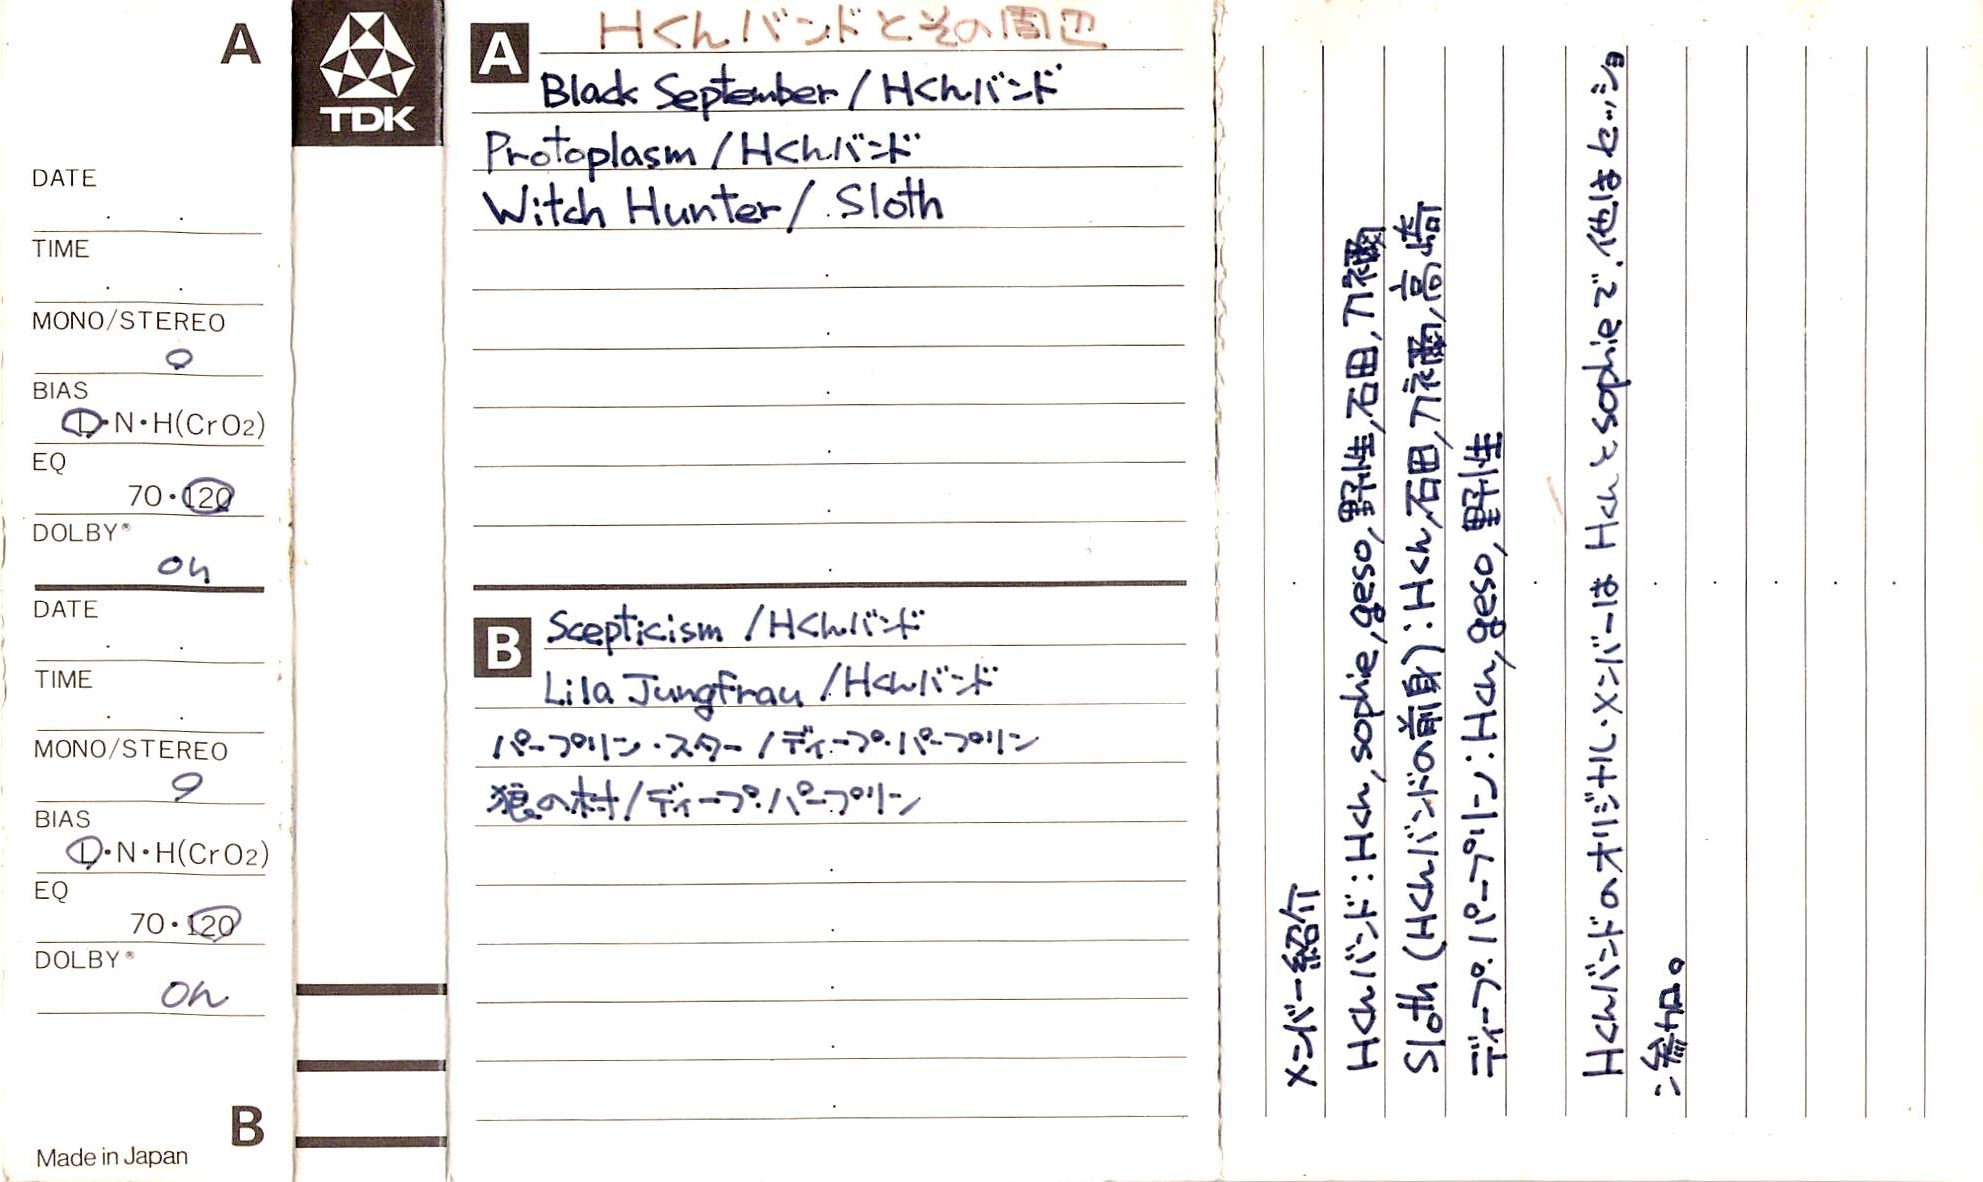 A
DATE
TIME
MONO/STEREO
○
BIAS
L・N・H(CrO2)
EQ
70・120
DOLBY®
on
DATE
TIME
MONO/STEREO
○
BIAS
L・N・H(CrO2)
EQ
70・120
DOLBY®
on
B
Made in Japan
TDK
Hくんバンドとその周辺
A
Black September / Hくんバンド
Protoplasm / Hくんバンド
Witch Hunter / Sloth
B
Scepticism / Hくんバンド
Lila Jungfrau / Hくんバンド
パープリン・スター / ディープ・パープリン
狼の村 / ディープ・パープリン
メンバー紹介
Hくんバンド:Hくん, sophie, geso, 野生, 石田, 刀禰
Sloth (Hくんバンドの前身):Hくん, 石田, 刀禰, 高崎
ディープ・パープリン:Hくん, geso, 野生
Hくんバンドのオリジナル・メンバーは Hくんとsophieで、他はセッショ
ン参加。